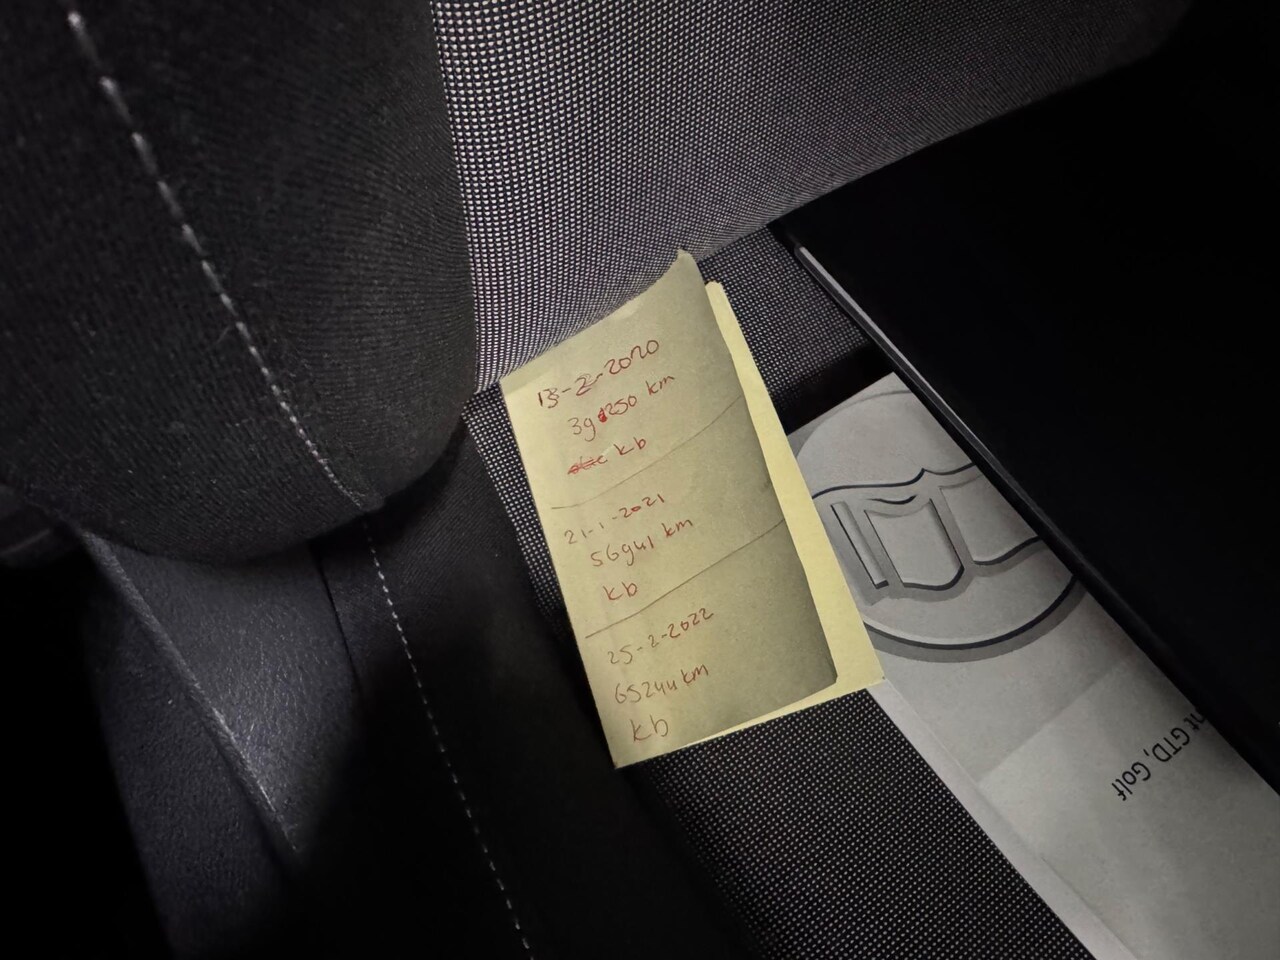 13-2-2020
39250 km
kb
21-1-2021
56941 km
kb
25-2-2022
65244 km
kb
nt GTD, Golf